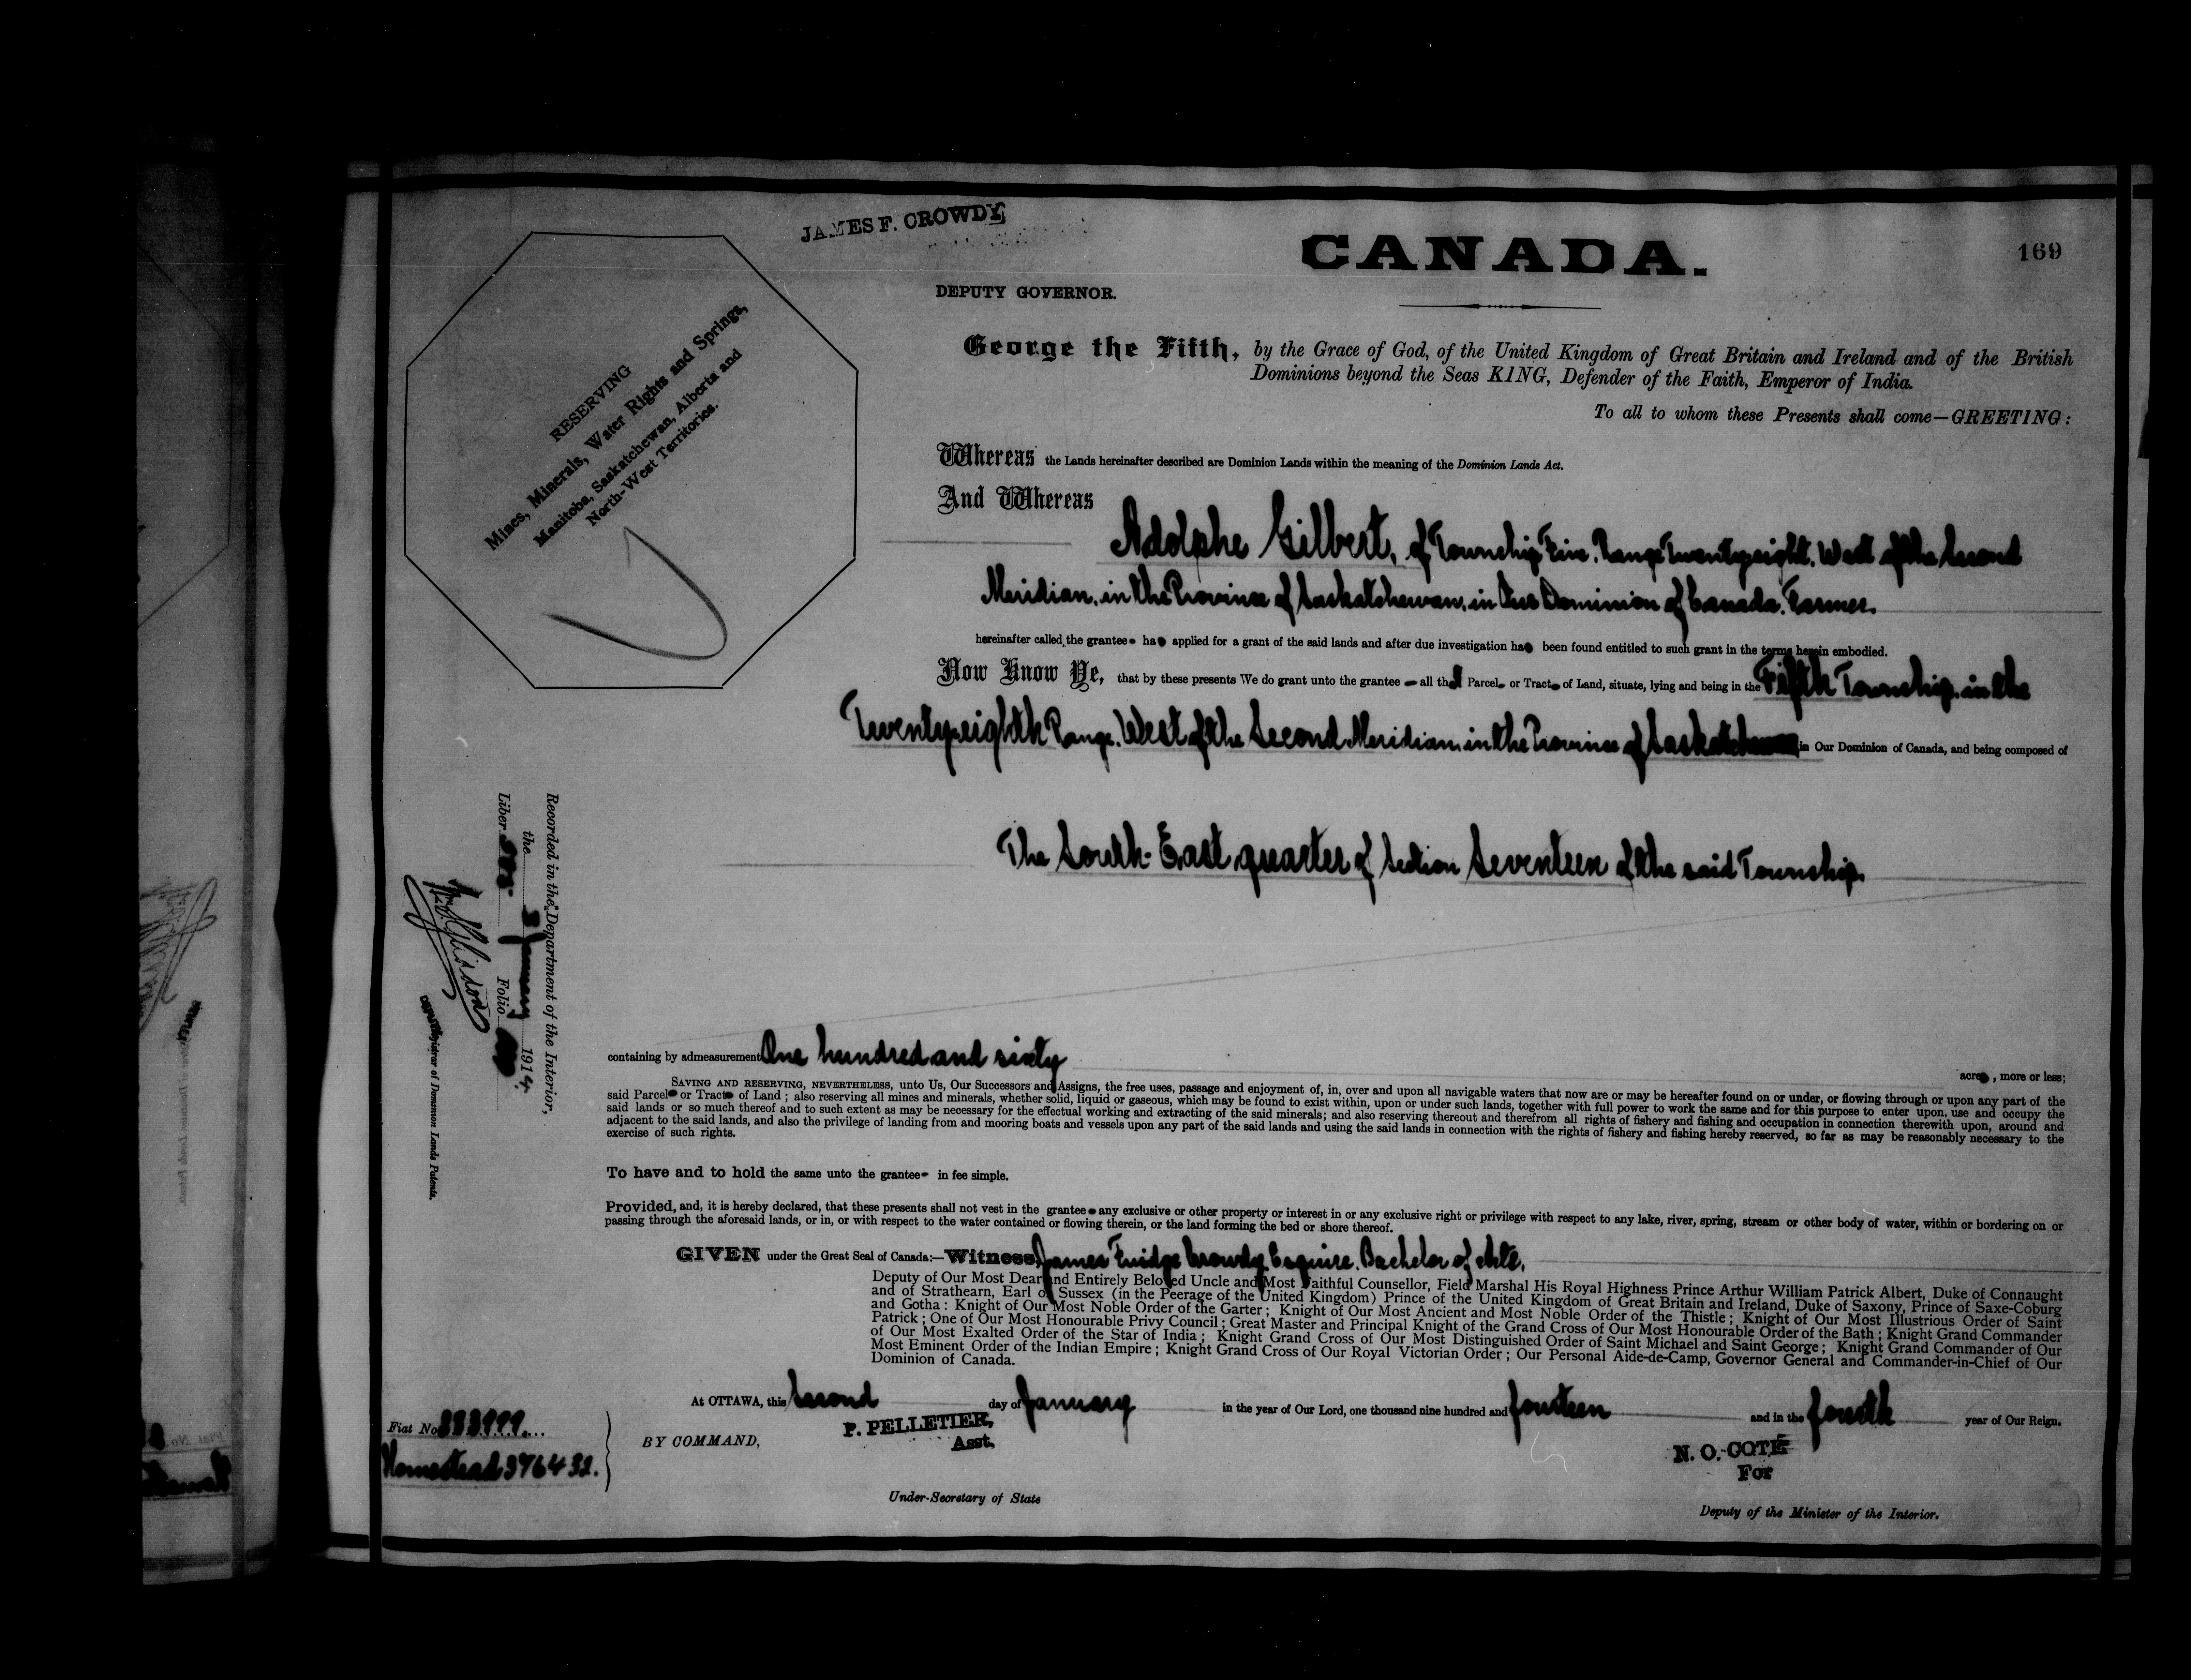 JAMES F. CROWDY,
CANADA.
169
DEPUTY GOVERNOR.
RESERVING
Mines, Minerals, Water Rights and Springs,
Manitoba, Saskatchewan, Alberta and
North-West Territories.
George the Fifth, by the Grace of God, of the United Kingdom of Great Britain and Ireland and of the British
Dominions beyond the Seas KING, Defender of the Faith, Emperor of India.
To all to whom these Presents shall come—GREETING:
Whereas the Lands hereinafter described are Dominion Lands within the meaning of the Dominion Lands Act.
And Whereas
Adolphe Gilbert, of Township Five, Range Twentyeight, West of the Second
Meridian, in the Province of Saskatchewan, in the Dominion of Canada, Farmer.
hereinafter called the grantee has applied for a grant of the said lands and after due investigation has been found entitled to such grant in the terms herein embodied.
Now Know Ye, that by these presents We do grant unto the grantee — all that Parcel or Tract of Land, situate, lying and being in the Fifth Township, in the
Twentyeighth Range, West of the Second Meridian, in the Province of Saskatchewan in Our Dominion of Canada, and being composed of
The South-East quarter of Section Seventeen of the said Township.
Recorded in the Department of the Interior,
the 3 January 1914.
Liber Folio
Registrar of Dominion Lands Patents.
containing by admeasurement One hundred and sixty
acres, more or less;
SAVING AND RESERVING, NEVERTHELESS, unto Us, Our Successors and Assigns, the free uses, passage and enjoyment of, in, over and upon all navigable waters that now are or may be hereafter found on or under, or flowing through or upon any part of the
said Parcel or Tract of Land; also reserving all mines and minerals, whether solid, liquid or gaseous, which may be found to exist within, upon or under such lands, together with full power to work the same and for this purpose to enter upon, use and occupy the
said lands or so much thereof and to such extent as may be necessary for the effectual working and extracting of the said minerals; and also reserving thereout and therefrom all rights of fishery and fishing and occupation in connection therewith upon, around and
adjacent to the said lands, and also the privilege of landing from and mooring boats and vessels upon any part of the said lands and using the said lands in connection with the rights of fishery and fishing hereby reserved, so far as may be reasonably necessary to the
exercise of such rights.
To have and to hold the same unto the grantee in fee simple.
Provided, and, it is hereby declared, that these presents shall not vest in the grantee any exclusive or other property or interest in or any exclusive right or privilege with respect to any lake, river, spring, stream or other body of water, within or bordering on or
passing through the aforesaid lands, or in, or with respect to the water contained or flowing therein, or the land forming the bed or shore thereof.
GIVEN under the Great Seal of Canada:—Witness, James Fuidge Crowdy, Esquire, Bachelor of Arts,
Deputy of Our Most Dear and Entirely Beloved Uncle and Most Faithful Counsellor, Field Marshal His Royal Highness Prince Arthur William Patrick Albert, Duke of Connaught
and of Strathearn, Earl of Sussex (in the Peerage of the United Kingdom) Prince of the United Kingdom of Great Britain and Ireland, Duke of Saxony, Prince of Saxe-Coburg
and Gotha: Knight of Our Most Noble Order of the Garter; Knight of Our Most Ancient and Most Noble Order of the Thistle; Knight of Our Most Illustrious Order of Saint
Patrick; One of Our Most Honourable Privy Council; Great Master and Principal Knight of the Grand Cross of Our Most Honourable Order of the Bath; Knight Grand Commander
of Our Most Exalted Order of the Star of India; Knight Grand Cross of Our Most Distinguished Order of Saint Michael and Saint George; Knight Grand Commander of Our
Most Eminent Order of the Indian Empire; Knight Grand Cross of Our Royal Victorian Order; Our Personal Aide-de-Camp, Governor General and Commander-in-Chief of Our
Dominion of Canada.
At OTTAWA, this Second day of January in the year of Our Lord, one thousand nine hundred and fourteen and in the fourth year of Our Reign.
Fiat No
Homestead 376432.
BY COMMAND,
P. PELLETIER,
Asst.
Under-Secretary of State
N. O. COTÉ
For
Deputy of the Minister of the Interior.